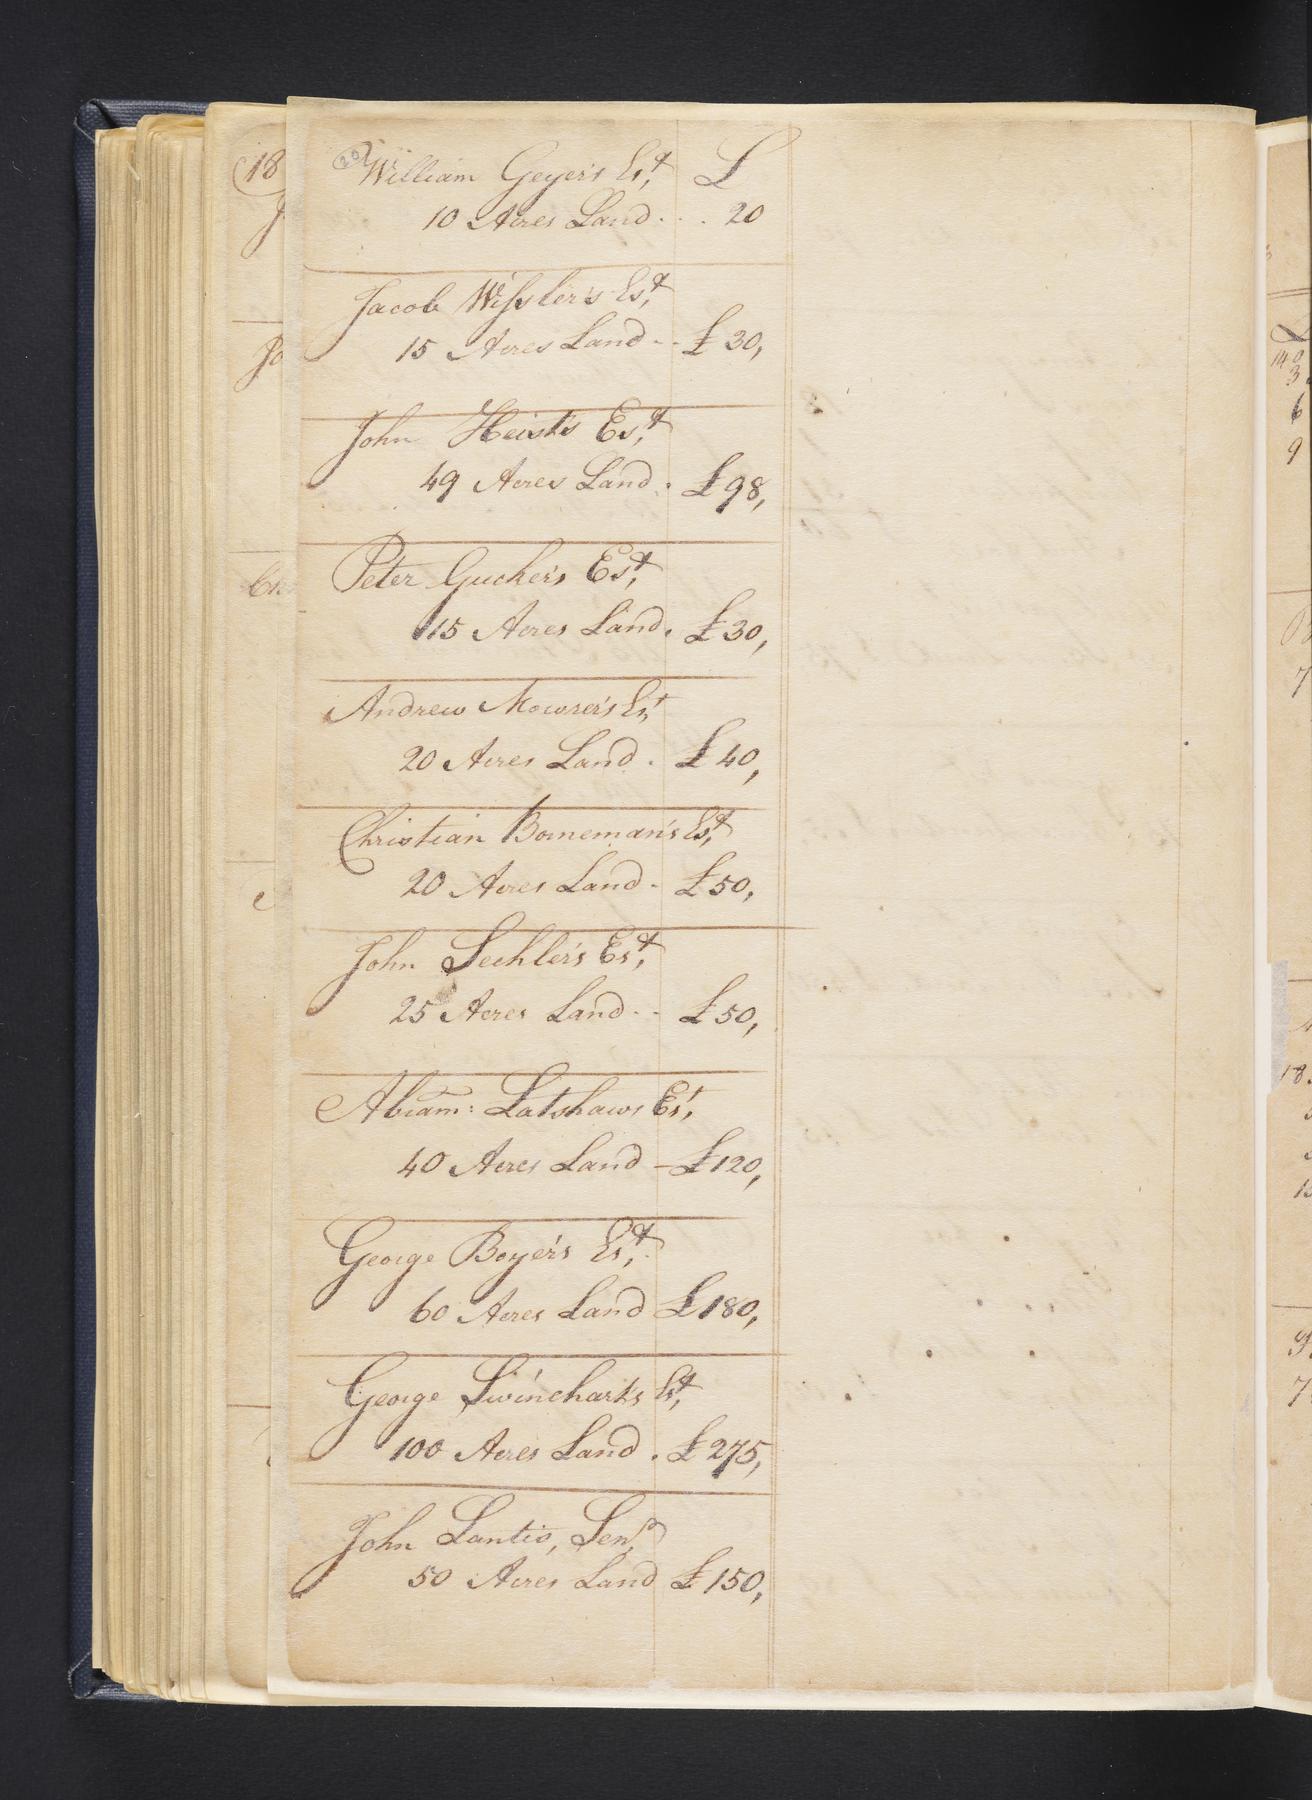 20
William Geyer's Est, £
10 Acres Land . . . 20
Jacob Wissler's Est,
15 Acres Land - - £ 30,
John Heist's Est,
49 Acres Land . £98,
Peter Gucker's Est,
15 Acres Land . £30,
Andrew Mowrer's Est
20 Acres Land . £40,
Christian Borneman's Est,
20 Acres Land - £50,
John Sechler's Est,
25 Acres Land - - £50,
Abram: Latshaws Est,
40 Acres Land - £120,
George Boyer's Est,
60 Acres Land £180,
George Swinehart's Est,
100 Acres Land . £275,
John Lantis, Senr
50 Acres Land £150,
18
Jo
140
3
6
9
7
18